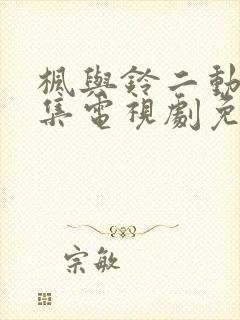 楓與鈴二動
集電視劇免
宗敏